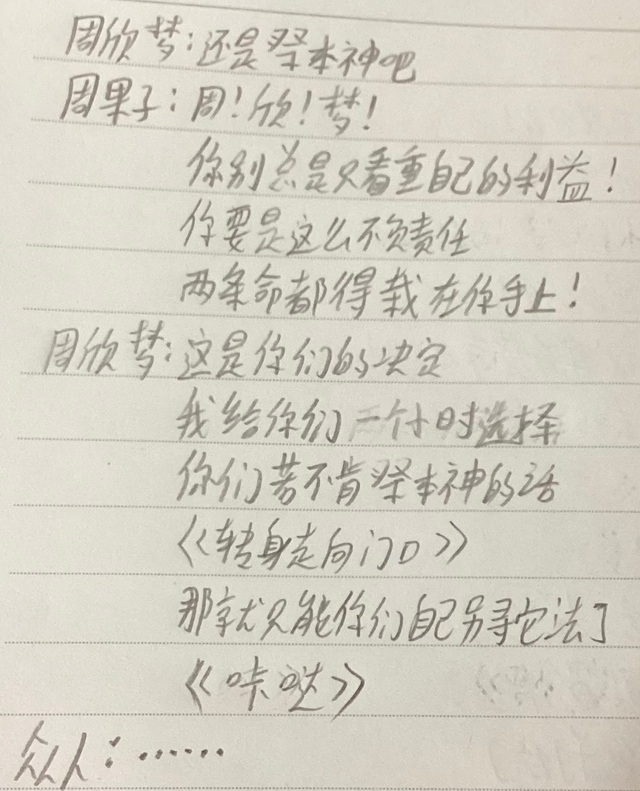 周欣梦:还是祭本神吧
周果子:周!欣!梦!
你别总是只看重自己的利益!
你要是这么不负责任
两条命都得栽在你手上!
周欣梦:这是你们的决定
我给你们一个小时选择
你们若不肯祭本神的话
《《转身走向门口》》
那就只能你们自己另寻它法了
《《咔哒》》
众人:……